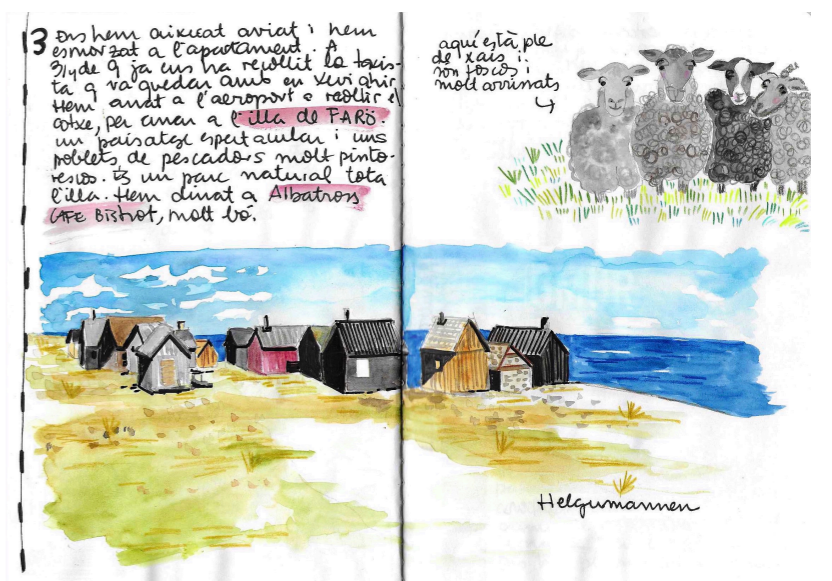 13 Ens hem aixecat aviat i hem
esmorzat a l'apartament. A
3/4 de 9 ja ens ha recollit la taxis-
ta q va quedar amb en Xevi ahir.
Hem anat a l'aeroport a recollir el
cotxe, per anar a l'illa de FARÖ.
un paisatge espectacular i uns
poblets de pescadors molt pinto-
rescos. És un parc natural tota
l'illa. Hem dinat a Albatross
CAFE BiStrot, molt bo.
aquí està ple
de xais i
són foscos i
molt arrissats
Helgumannen